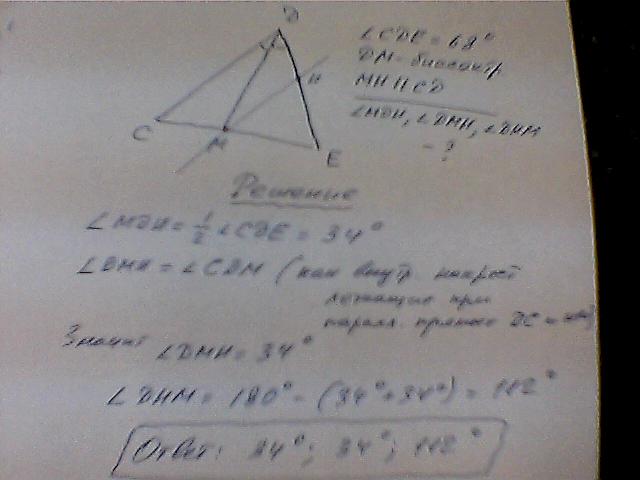 D
C
M
E
H
∠CDE = 68°
DM - биссектр
MH || CD
∠MDH, ∠DMH, ∠DHM
- ?
Решение
∠MDH = 1/2 ∠CDE = 34°
∠DMH = ∠CDM (как внутр. накрест
лежащие при
паралл. прямых DC и
Значит ∠DMH = 34°
∠DHM = 180° - (34°+34°) = 112°
Ответ: 34°; 34°; 112°